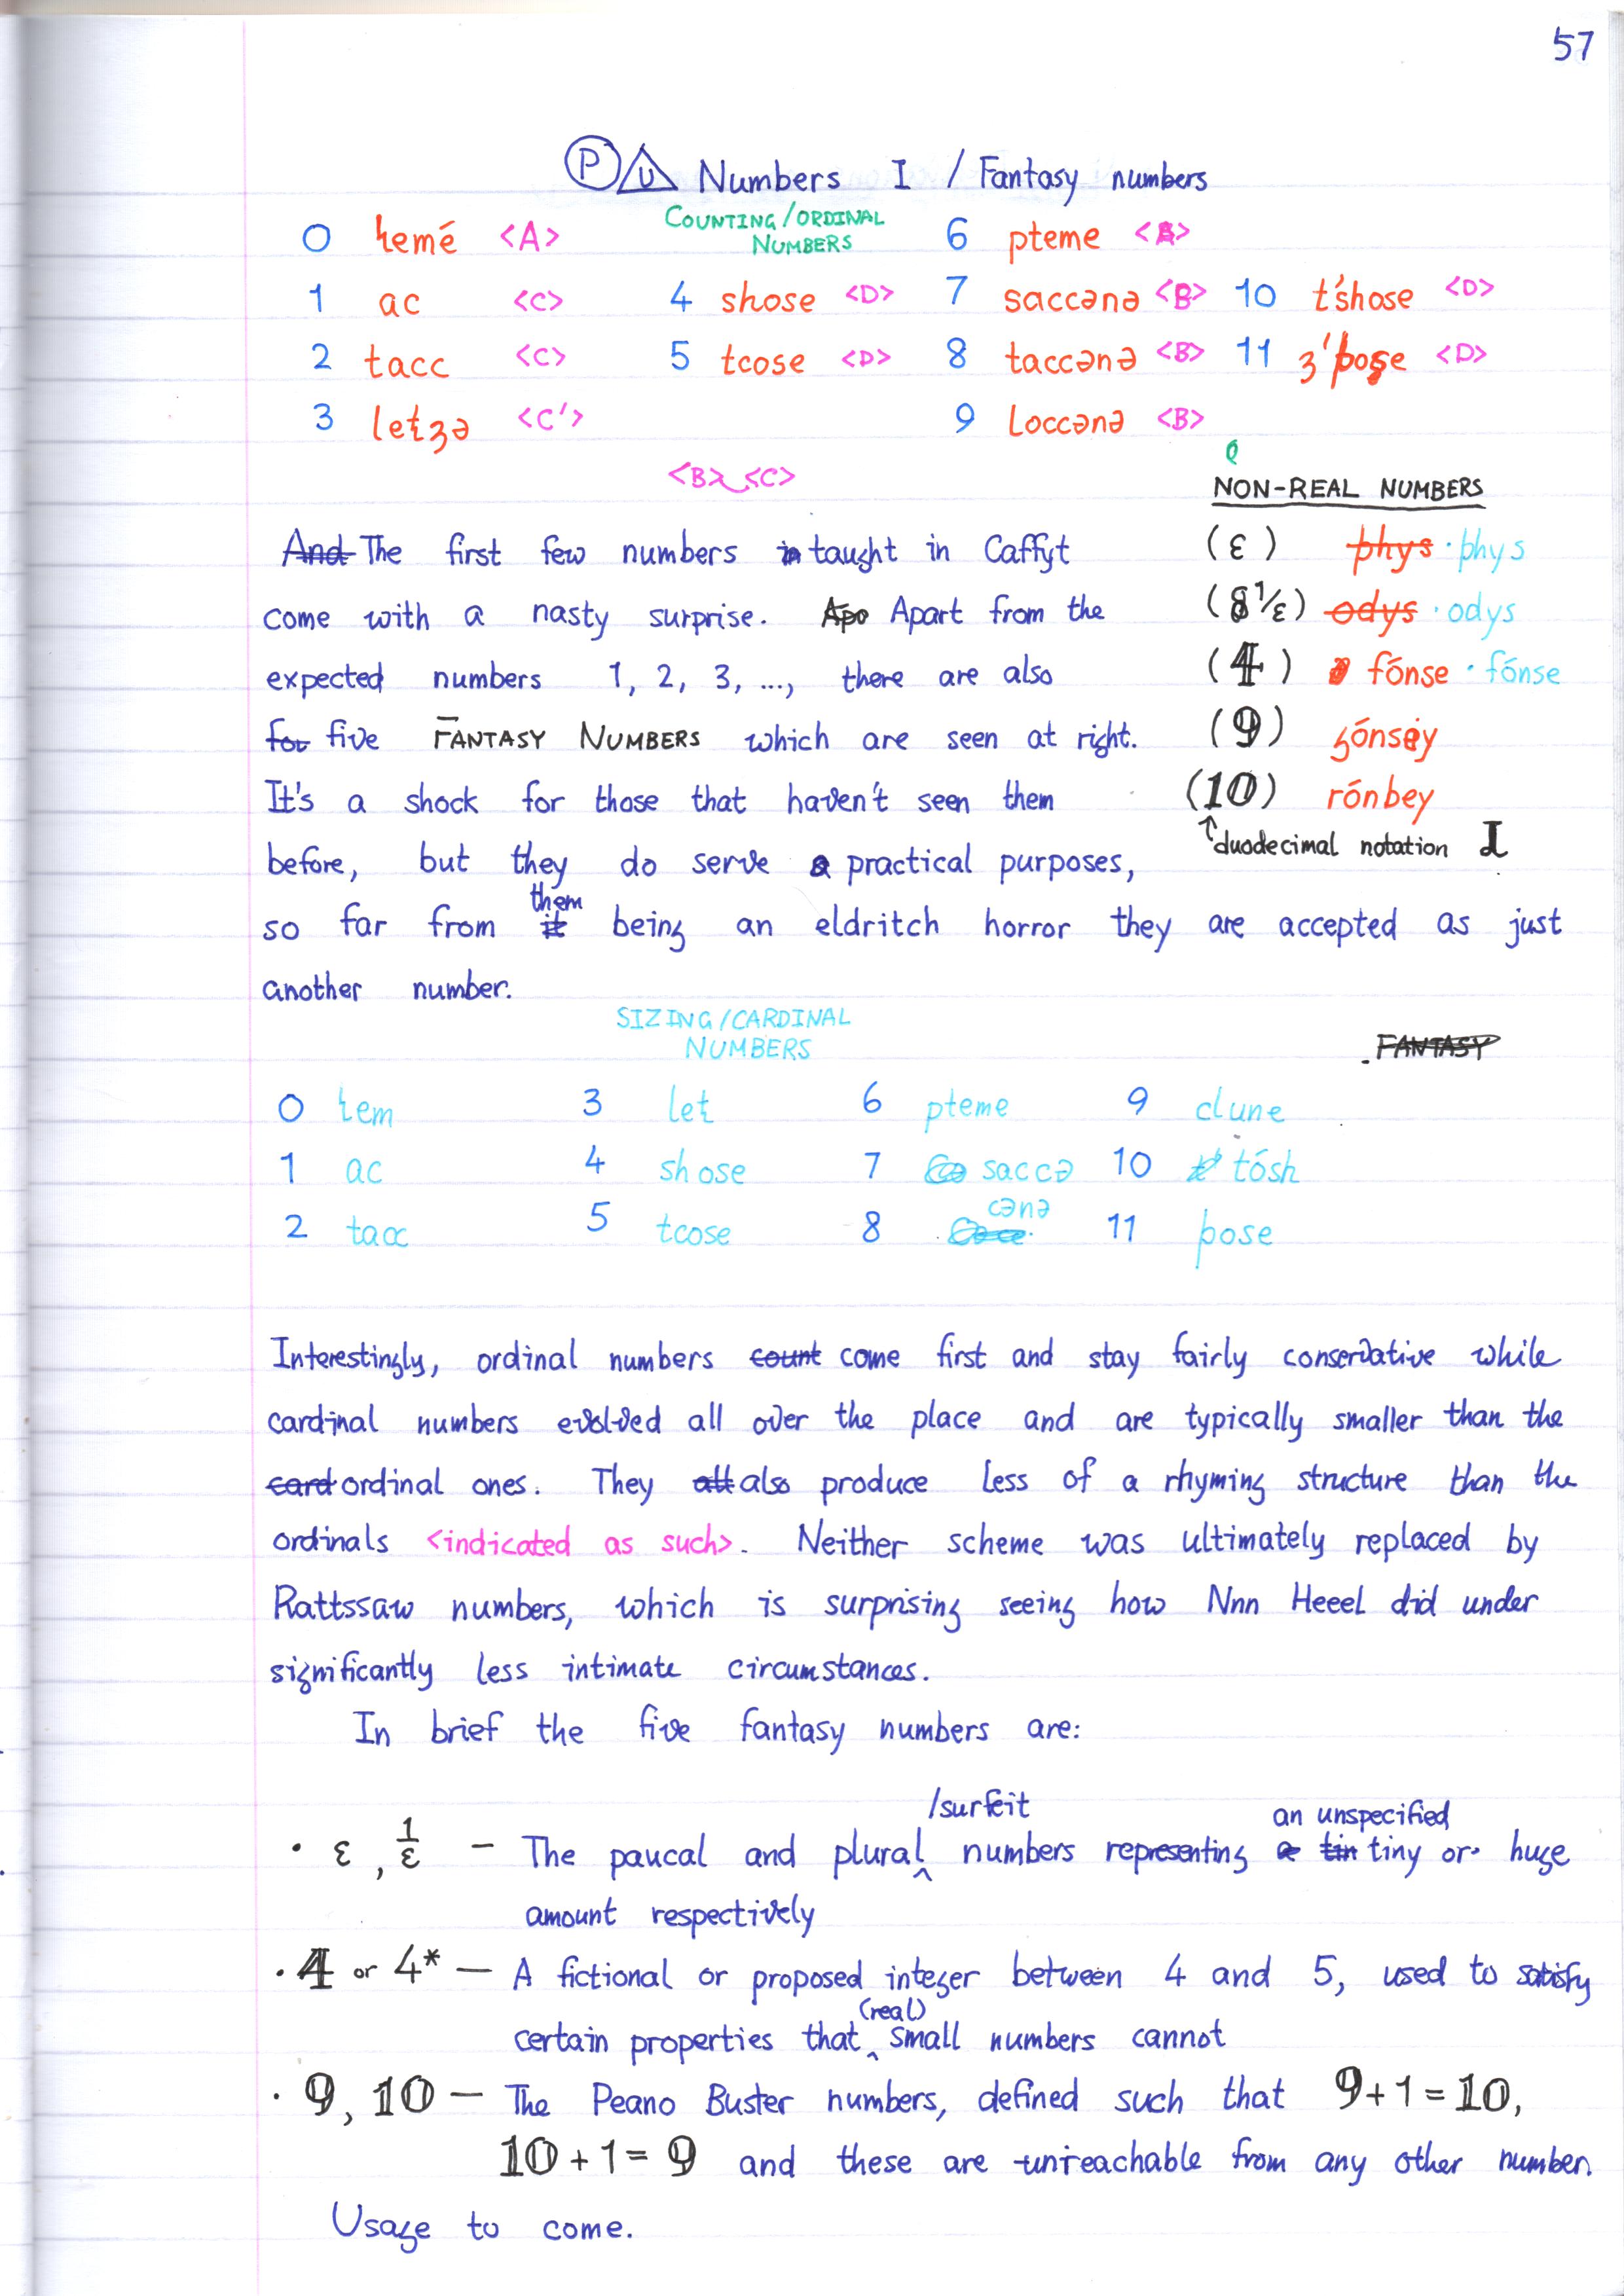 57
P U Numbers I / Fantasy numbers
COUNTING/ORDINAL
NUMBERS
0 ꞕemé <A> 6 pteme <A>
1 ac <C> 4 shose <D> 7 saccənə <B> 10 t'śhose <D>
2 tacc <C> 5 tcose <D> 8 taccənə <B> 11 <D>
3 leꞎʒə <C'> 9 loccənə <B>
<B> <C>
NON-REAL NUMBERS
(ε) phys · phys
(8 1/ε) odys · odys
(4) fónse · fónse
(9)
(10) rónbey
↑ duodecimal notation I
And The first few numbers in taught in Caffyt
come with a nasty surprise. Apo Apart from the
expected numbers 1, 2, 3, ..., there are also
for five FANTASY NUMBERS which are seen at right.
It's a shock for those that haven't seen them
before, but they do serve a practical purposes,
so far from it them being an eldritch horror they are accepted as just
another number.
SIZING/CARDINAL
NUMBERS
FANTASY
0 ꞕem 3 leꞎ 6 pteme 9 clune
1 ac 4 shose 7 saccə 10 tósh
2 tacc 5 tcose 8 cənə 11 þose
Interestingly, ordinal numbers count come first and stay fairly conservative while
cardinal numbers evolved all over the place and are typically smaller than the
card ordinal ones. They all also produce less of a rhyming structure than the
ordinals <indicated as such>. Neither scheme was ultimately replaced by
Rattssaw numbers, which is surprising seeing how Nnn Heeel did under
significantly less intimate circumstances.
In brief the five fantasy numbers are:
· ε, 1/ε – The paucal and plural/surfeit numbers representing a tin an unspecified tiny or huge
amount respectively
· 4 or 4* – A fictional or proposed integer between 4 and 5, used to satisfy
certain properties that (real) small numbers cannot
· 9, 10 – The Peano Buster numbers, defined such that 9+1=10,
10+1=9 and these are unreachable from any other number.
Usage to come.